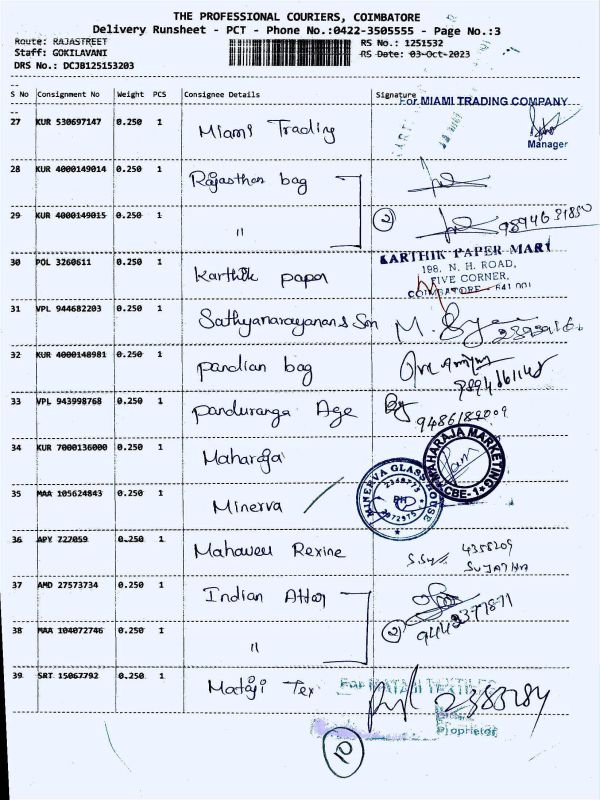 THE PROFESSIONAL COURIERS, COIMBATORE
Delivery Runsheet - PCT - Phone No.:0422-3505555 - Page No.:3
Route: RAJASTREET
Staff: GOKILAVANI
DRS No.: DCJB125153203
RS No.: 1251532
RS Date: 03-Oct-2023
S No Consignment No Weight PCS Consignee Details Signature
For MIAMI TRADING COMPANY
27 KUR 530697147 0.250 1 Miami Trading
Manager
28 KUR 4000149014 0.250 1 Rajasthan bag
29 KUR 4000149015 0.250 1 " 2 9894631850
30 POL 3260611 0.250 1 Karthik paper
KARTHIK PAPER MART
198, N. H. ROAD,
FIVE CORNER,
COIMBATORE - 641 001
31 VPL 944682203 0.250 1 Sathyanarayanan & Son
32 KUR 4000148981 0.250 1 pandian bag
33 VPL 943998768 0.250 1 panduranga Age
34 KUR 7000136000 0.250 1 Maharaja
MAHARAJA MARKETING
CBE-1
35 MAA 105624843 0.250 1 Minerva
MINERVA GLASS HOUSE
36 APY 727059 0.250 1 Mahaveer Rexine 4358209
37 AMD 27573734 0.250 1 Indian Attar
38 MAA 104072746 0.250 1 " 2 9442377871
39 SRT 15067792 0.250 1 Mataji Tex
For MATAJI TEXTILES
2383284
Proprietor
10